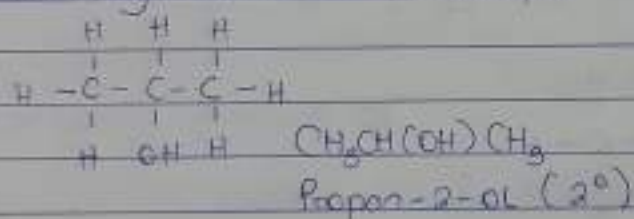 H H H
H - C - C - C - H
H OH H CH₃CH(OH)CH₃
Propan-2-OL (2°)